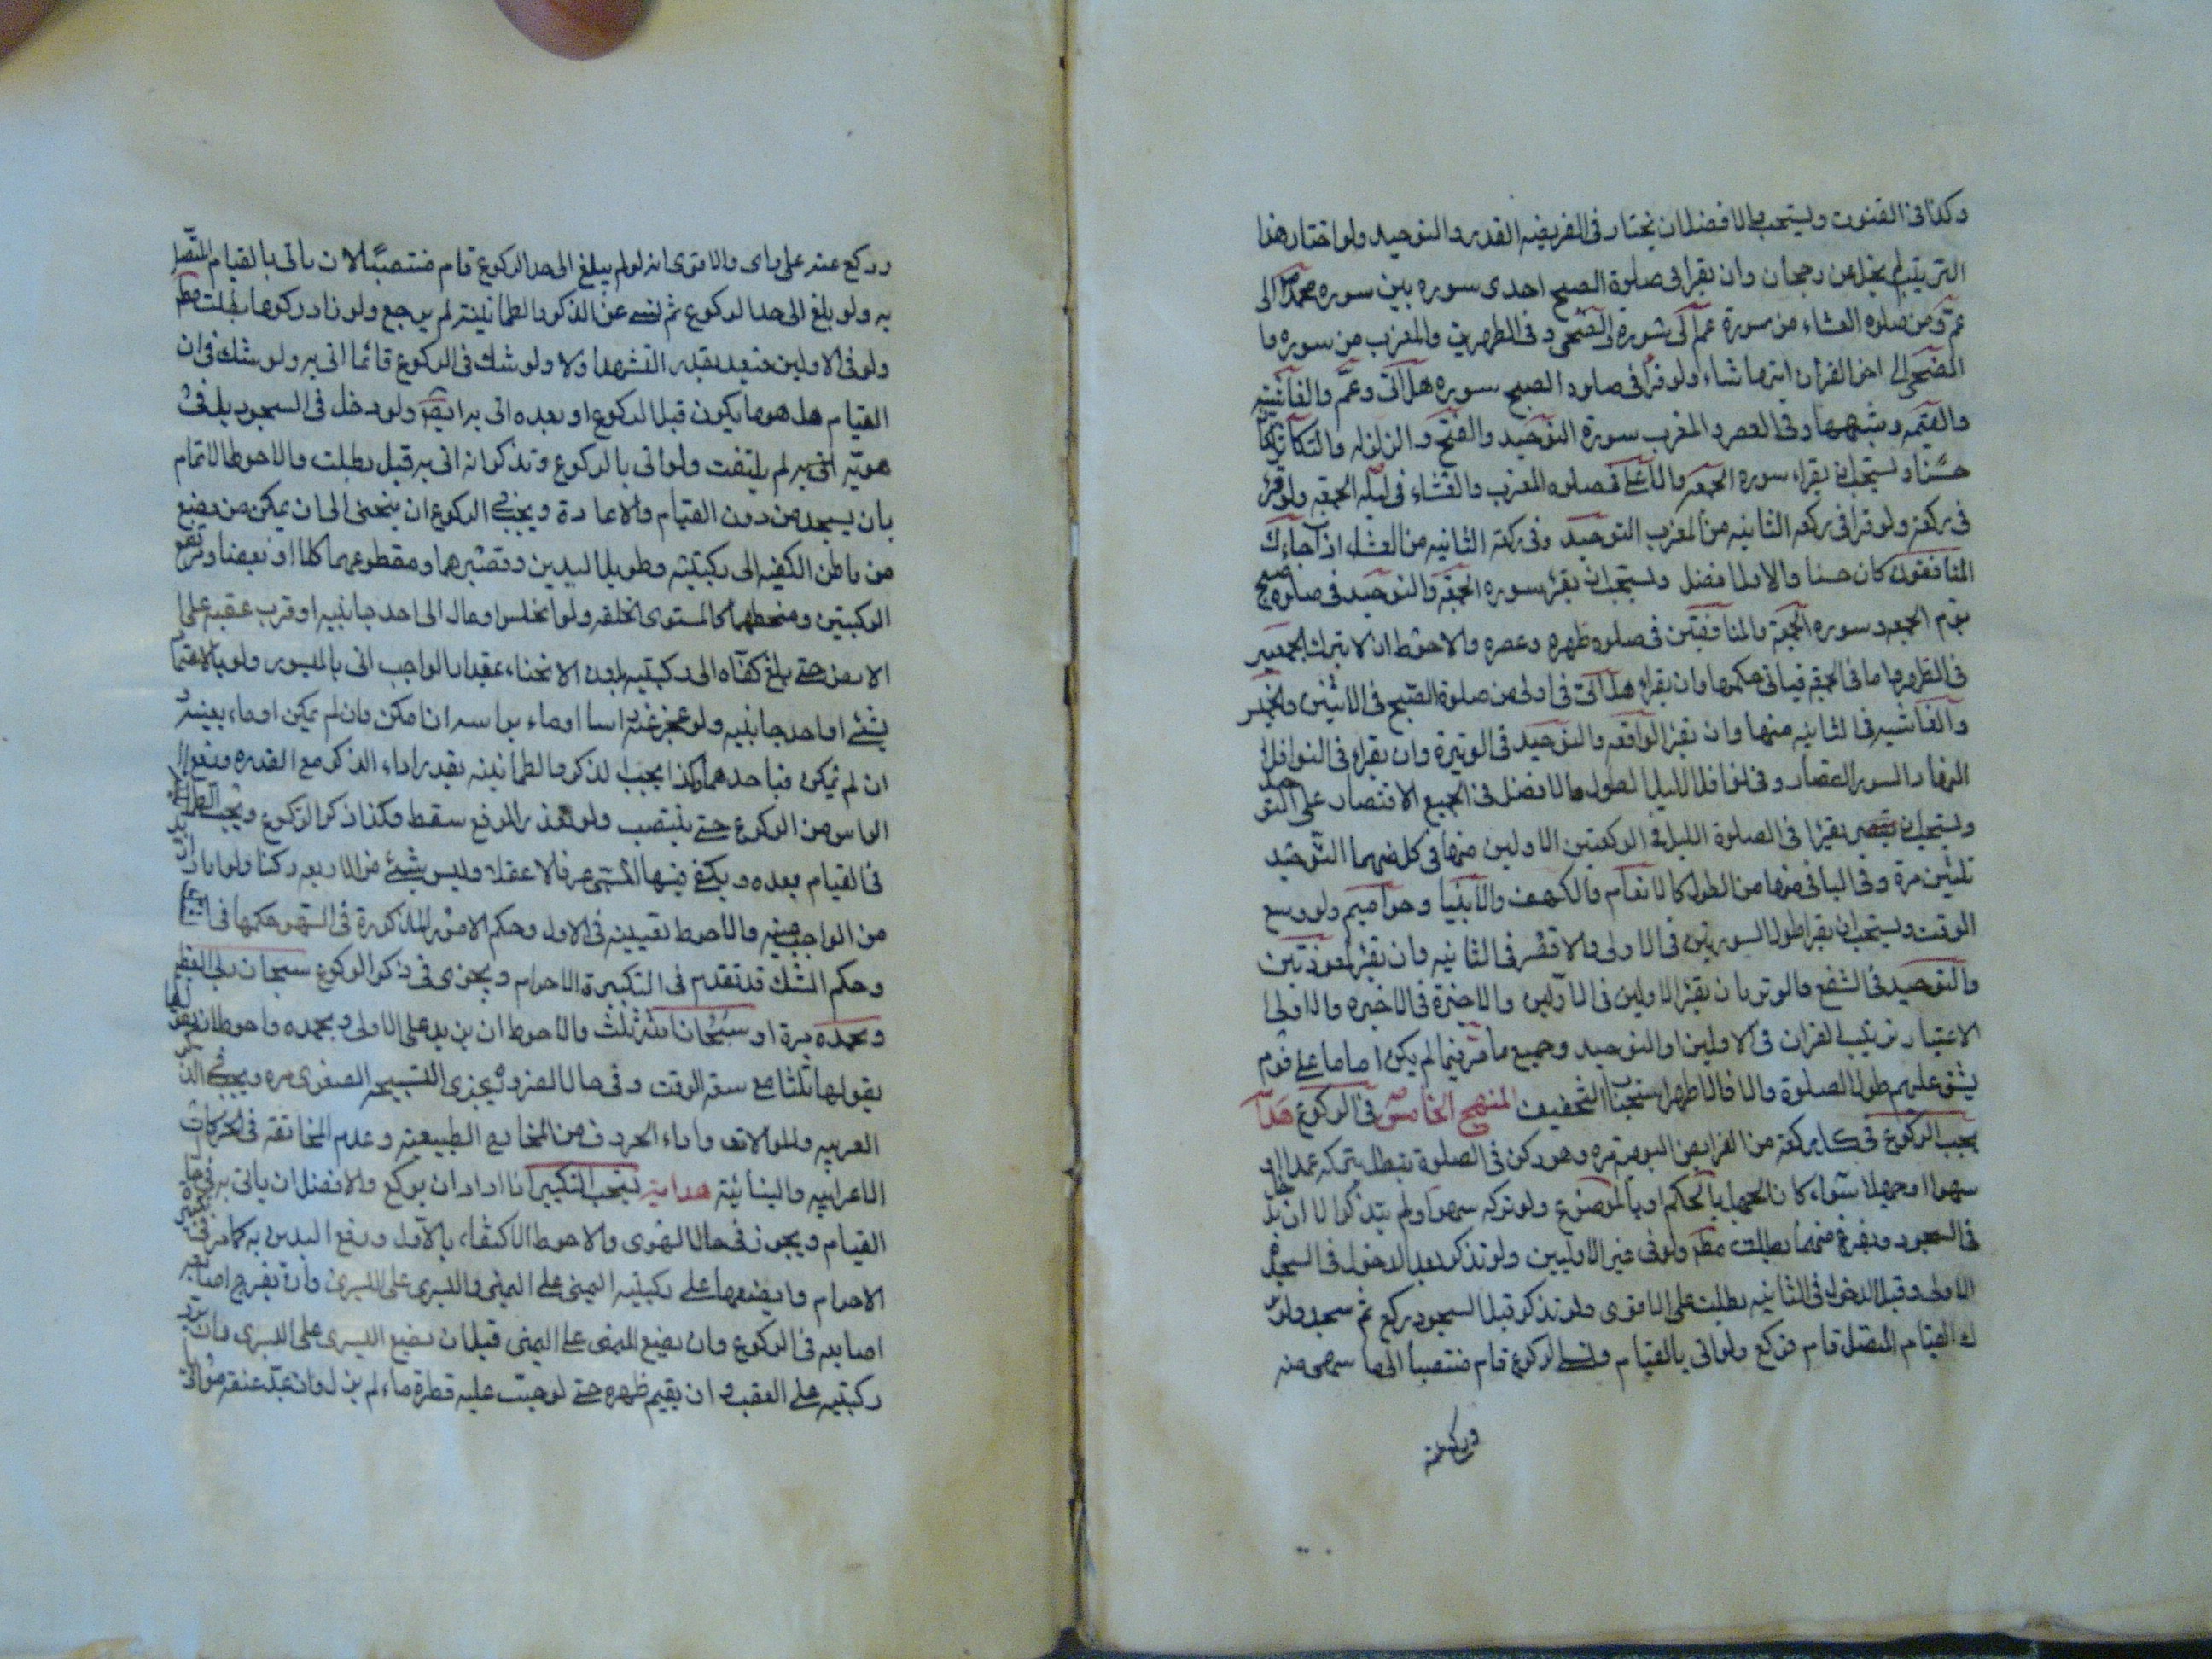 وكذا فى القنوت ويستحب والافضل ان يختار فى الفريضه القدر والتوحيد ولو اختار هذا
الترتيب لم يخل عن رجحان وان يقرا فى صلوة الصبح احدى سوره بين سوره محمد الى
عم ومن صلوه العشاء من سورة عم الى سورة الضحى وفى الظهرين والمغرب من سوره ما
الضحى الى اخر القران ايتها شاء ولو قرا فى صلوه الصبح سوره هل اتى وعم والغاشيه
والقيمه وشبهها وفى العصر والمغرب سورة التوحيد والفتح والزلزله والتكاثر كان
حسنا ويستحب ان يقراء سوره الجمعه والاعلى فى صلوه المغرب والعشاء فى ليله الجمعه ولو قرء
فى ركعة ولو قرا فى ركعه الثانيه من المغرب التوحيد وفى ركعة الثانيه من العشاء اذا جاءك
المنافقون كان حسنا والاول افضل ويستحب ان يقرء سوره الجمعه والتوحيد فى صلوه صبح
يوم الجمعه وسوره الجمعة والمنافقين فى صلوه ظهره وعصره والاحوط ان لا يترك الجمعه
فى الظهر واما فى الجمعه فياتى حكمها وان يقراء هل اتى فى اولى من صلوة الصبح فى الاثنين والخميس
والغاشيه فى الثانيه منها وان يقرء الواقعه والتوحيد فى الوتيرة وان يقراء فى النوافل
النهار السور القصار وفى نوافل الليل الطول والافضل فى الجميع الاقتصار على التوحيد
ويستحب ان يقرا فى الصلوة الليل فى الركعتين الاولين منها فى كل منهما التوحيد
ثلثين مرة وفى الباقى منها من الطول كالانعام والكهف والانبيا وحواميم ولو وسع
الوقت ويستحب ان يقرا طول السورتين فى الاولى والاقصر فى الثانيه وان يقرء المعوذتين
والتوحيد فى الشفع والوتر بان يقرء الاولين فى الاولين والاخيرة فى الاخيره والاولى
الاعتبار ترتيب القران فى الاولين والتوحيد وجميع ما مر فيما لم يكن اماما على قوم
يشق عليهم طول الصلوة والا فالاظهر استحباب التخفيف المنهج الخامس فى الركوع هداية
يجب الركوع فى كل ركعة من الفرايض اليوميه مره وهو ركن فى الصلوة تبطل بتركه عمدا او
سهوا او جهلا سواء كان الجهل بالحكم او بالموضوع ولو تركه سهوا ولم يتذكر الا ان دخل
فى السجود ويفرغ منهما بطلت مطم ولو فى غير الاوليين ولو تذكر بعد الدخول فى السجدة
الاولى وقبل الدخول فى الثانيه بطلت على الاقوى ولو تذكر قبل السجود يركع ثم سجد ولو تر
ك القيام المتصل قام فركع ولو اتى بالقيام ونسى الركوع قام منتصبا الى ما سهى منه
وركع منه
وركع عنه على راى والاقوى انه لو لم يبلغ الى حد الركوع قام منتصبا لان ياتى بالقيام المتصل
به ولو بلغ الى حد الركوع ثم نسى عن الذكر والطمانينة لم يرجع ولو زاد ركوعا بطلت مطم
ولو فى الاولين متعد بقدر التشهد اولا ولو شك فى الركوع قائما اتى به ولو شك فى ان
القيام هل هو ما يكون قبل الركوع او بعده اتى به ايضا ولو دخل فى السجود بل فى
هويه اتى به لم يلتفت ولو اتى بالركوع وتذكر انه اتى به قبل بطلت والاحوط الاتمام
بان يسجد من دون القيام والاعادة ويجب فى الركوع ان ينحنى الى ان يمكن من وضع
من باطن الكفيه الى ركبتيه وطويل اليدين وقصيرهما ومقطوعهما كلا او بعضا ومرتفع
الركبتين ومنحطهما كالمستوى الخلقه ولو انخلس او مال الى احد جانبيه او قرب عقبه على
الارض حتى بلغ كفاه الى ركبتيه بدون الانحناء عقدار الواجب اتى بالميسور ولو بالاعتماد
بشئ او احد جانبيه ولو عجز عنه اسا اوماء براسه ان امكن وان لم يمكن اوماء بعينيه
ان لم يمكن فباحدهما وكذا يجب الذكر والطمانينه بقدر اداء الذكر مع القدره ورفع
الراس من الركوع حتى ينتصب ولو تعذر الرفع سقط وكذا ذكر الركوع ويجب الطمانينة
فى القيام بعده ويكفى فيها المسمى عرفا لا عقلا وليس شئ من الاربعه ركنا ولو اراد
من الواجب فيه والاحوط تعيينه فى الاول وحكم الامور المذكورة فى السهو حكمها فى
وحكم الشك قد تقدم فى التكبيرة الاحرام ويجزى فى ذكر الركوع سبحان ربى العظيم
وبحمده مرة او سبحان الله ثلث والاحوط ان يزيد على الاولى وبحمده واحوط ان
يقولها ثلثا مع سعة الوقت وفى حال الضروة يجزى التسبيحه الصغرى مره ويجب فى
العربيه والموالات واداء الحروف من المخارج الطبيعيه وعدم المخالفه فى الحركات
الاعرابيه والبنائية هداية يستحب التكبير اذا اراد ان يركع والافضل ان ياتى به فى حال
القيام ويجوز فى حال الهوى والاحوط الاكتفاء بالاول ورفع اليدين به كما مر فى
الاحرام وان يضعها على ركبتيه اليمنى على اليمنى واليسرى على اليسرى وان يفرج
اصابعه فى الركوع وان يضع اليمنى على اليمنى قبل ان يضع اليسرى على اليسرى وان يرد
ركبتيه على العقب وان يقيم ظهره حتى لو صبت عليه قطرة ماء لم يزل وان يمد عنقه موازى